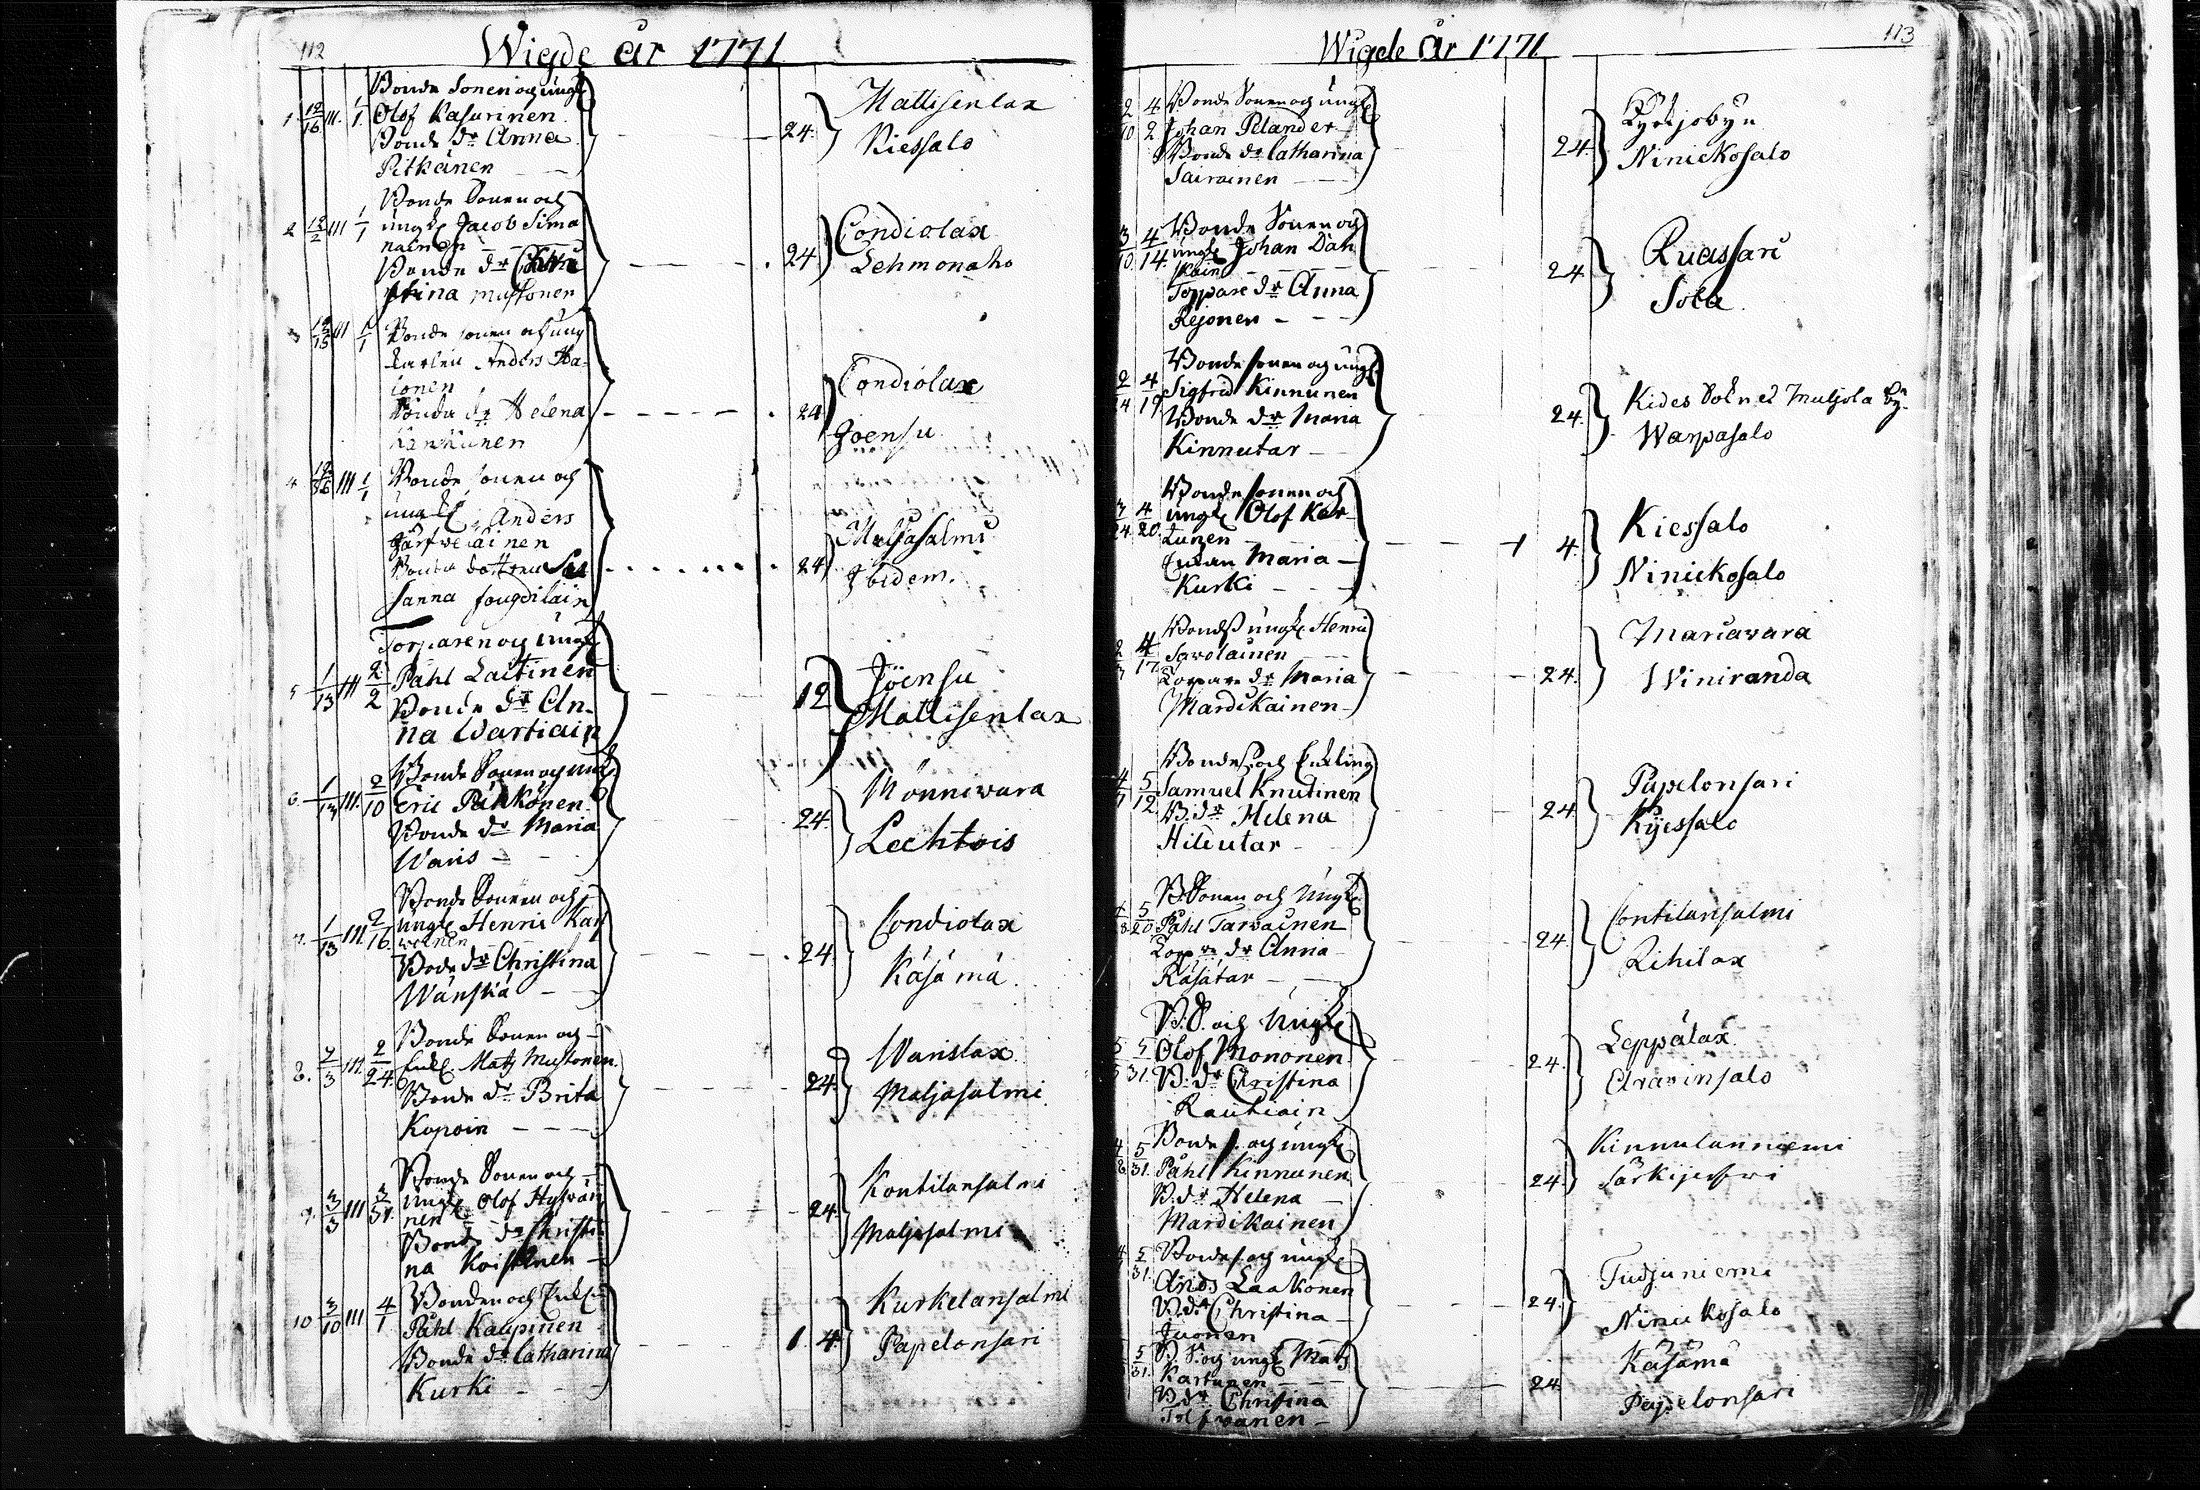 112
Wigde år 1771
Bonde Sonen og ungk
1. 12/16 III. 1/1. Olof Kasurinen
Bonde dr Anna
Pitkänen
24. Mattisenlax
Kiessalo
Bonde Sonen och
2 12/2 III 1/1 ungk Jacob Sima
nainen
Bonde dr Chri
stina Mustonen
24 Condiolax
Lehmonaho
3 III 1/1 Bonde sonen och ung
karlen Anders Ha-
ionen
Bonde dr Helena
24 Condiolax
Joensu
4 III 1/1 Bonde sonen och
ungk Anders
Bonde dotteren Su
sanna fougdilain
24 Maljasalmi
Ibidem.
Torparen og ungk
5 1/13 III 2/2 Påhl Laitinen
Bonde dr An-
na Wartiain
12 Jöensu
Mattisenlax
Bonde Sonen og ungk
6. 1/13 III. 2/10 Eric Pänkönen
Bonde dr Maria
Waris
24. Mönniwara
Lechtois
Bonde Sonen och
7. 1/13 III. 2/16. ungk Henric Kar
wainen
Bode dr Christina
Wänskä
24. Condiolax
Käsämä.
Bonde Sonen och
8. 2/3 III. 2/24. Enkl Matz Mustonen.
Bonde dr Brita
Kopoin
24. Warislax
Maljasalmi.
Bonde Sonen och
9. 3/3 III 3/31. ungk Olof Hyvär
nen
Bonde dr Christi
na Koistinen
24. Kontilansalmi
Maljasalmi
10 3/10 III 4/1 Bonden och Enkl
Påhl Kaupinen
Bonde dr Catharina
Kurki
1. 4. Kurkelansalmi
Papelonsari
113
Wigde År 1771
2/10 4/2 Bonde Sonen och ungk
Johan Pelander
Bonde dr Catharina
Sairainen
24. Kyrkjobyn
Ninickosalo
3/10. 4/14. Bonde Sonen och
ungk Johan Dahl
kain
Torpare dr Anna
Rejonen
24. Ruassari
Sola.
4/19 Bonde sonen og ungk
Sigfrid Kinnunen
Bonde dr Maria
Kinnutar
24. Kides Sokned Muljola By.
Warpasalo
3/24 4/20. Bonde sonen och
ungk Olof Kar-
tunen
Enkan Maria
Kurki
1 4. Kiessalo
Ninickosalo
4/17. BondeS ungk Henric
Sawolainen
Torpare dr Maria
Mardikainen
24. Mariawara
Winiranda
5/12 BondeS och Enkling
Samuel Knutinen
B. dr Helena
Hildutar
24. Papelonsari
Kyessalo
5/20 B Sonen och Ungk.
Påhl Tarwainen
Torp dr Anna
Räsätar
24. Contilansalmi
Rihilax
5/31. B. S. och Ungk
Olof Mononen
B: dr Christina
Rautiain
24. Leppälax
Arawinsalo
5/31. Bonde s. og ungk
Påhl Kinnunen
B. dr Helena
Mardikainen
24. Kinnulanniemi
Särkijerfwi
5/31. Bonde s. och ungk
Ands Laakonen
B. dr Christina
Juonen
24. Tudjuniemi
Ninickosalo
5/31. B S. og ungk Matz
Kartunen
B. dr Christina
Tolfwanen
24 Käsämä
Papelonsari